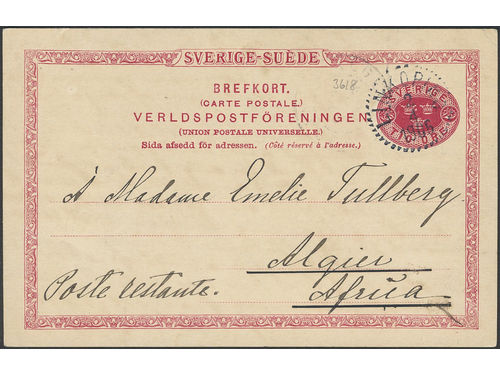 SVERIGE-SUÈDE
BREFKORT.
(CARTE POSTALE.)
VERLDSPOSTFÖRENINGEN
(UNION POSTALE UNIVERSELLE.)
Sida afsedd för adressen. (Côté réservé à l'adresse.)
3618
SVERIGE
TIO ÖRE
À Madame Emelie Tullberg
Algier
Poste restante. Africa